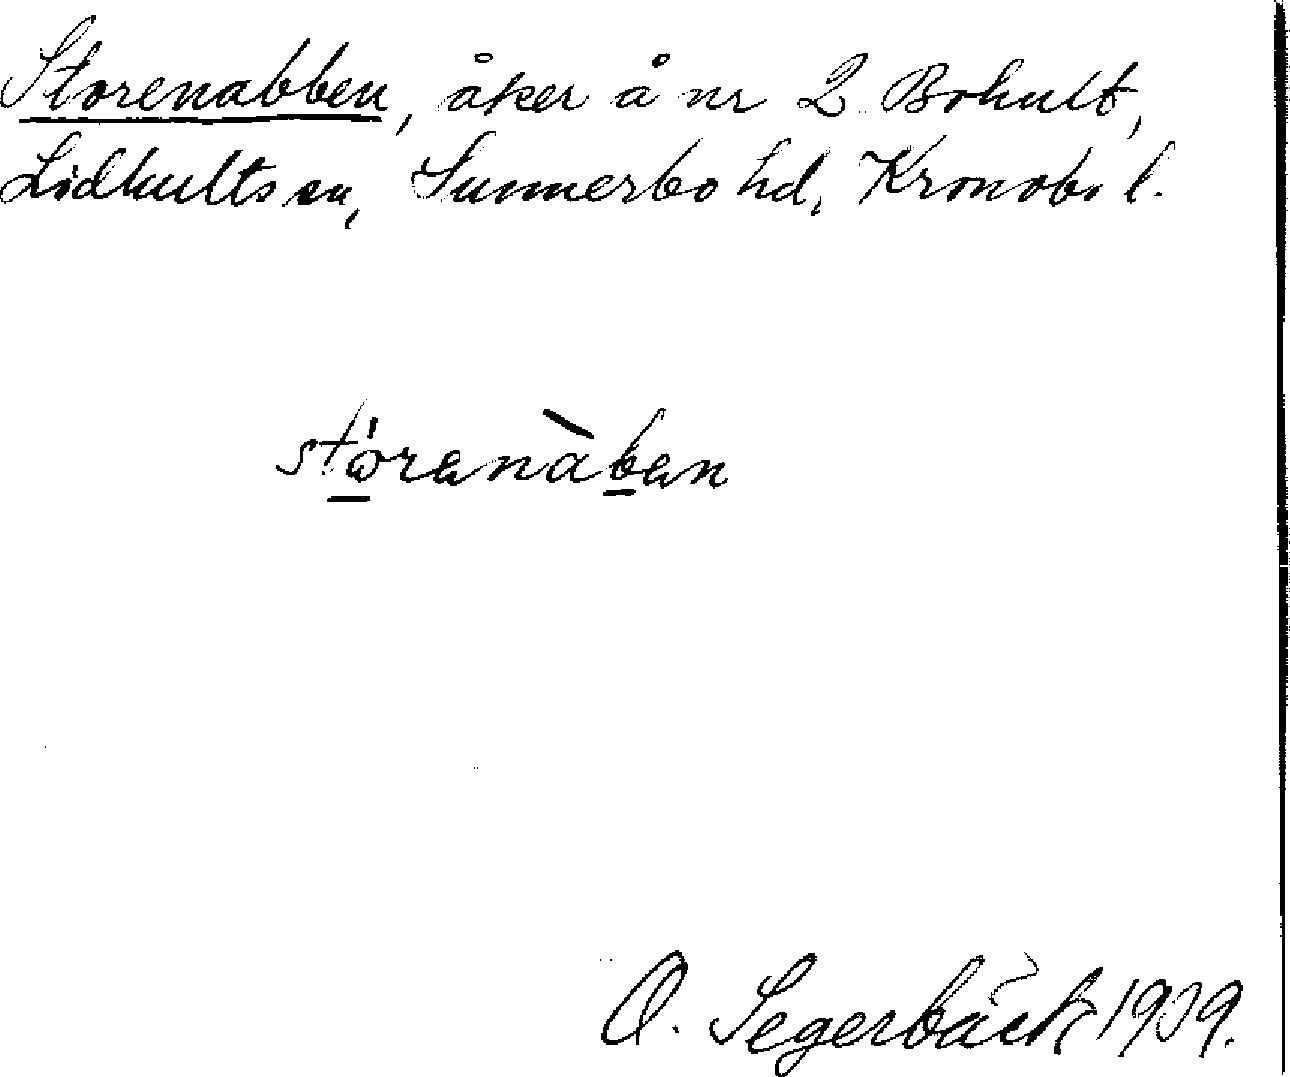 Storenabben, åker å nr 2 Bohult,
Lidhults sn, Sunnerbo hd, Kronobs l.
stòranàban
O. Segerbäck 1939.